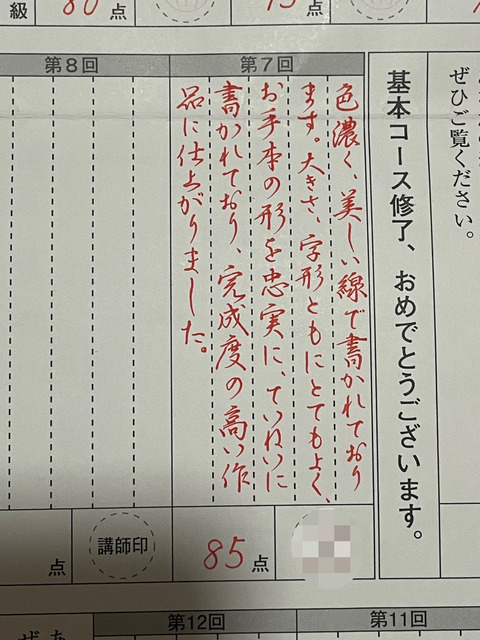 級 80 点
75 点
ぜひご覧ください。
基本コース修了、おめでとうございます。
第7回
色濃く、美しい線で書かれており
ます。大きさ、字形ともにとてもよく、
お手本の形を忠実に、ていねいに
書かれており、完成度の高い作
品に仕上がりました。
85 点
第8回
講師印
点
第11回
第12回